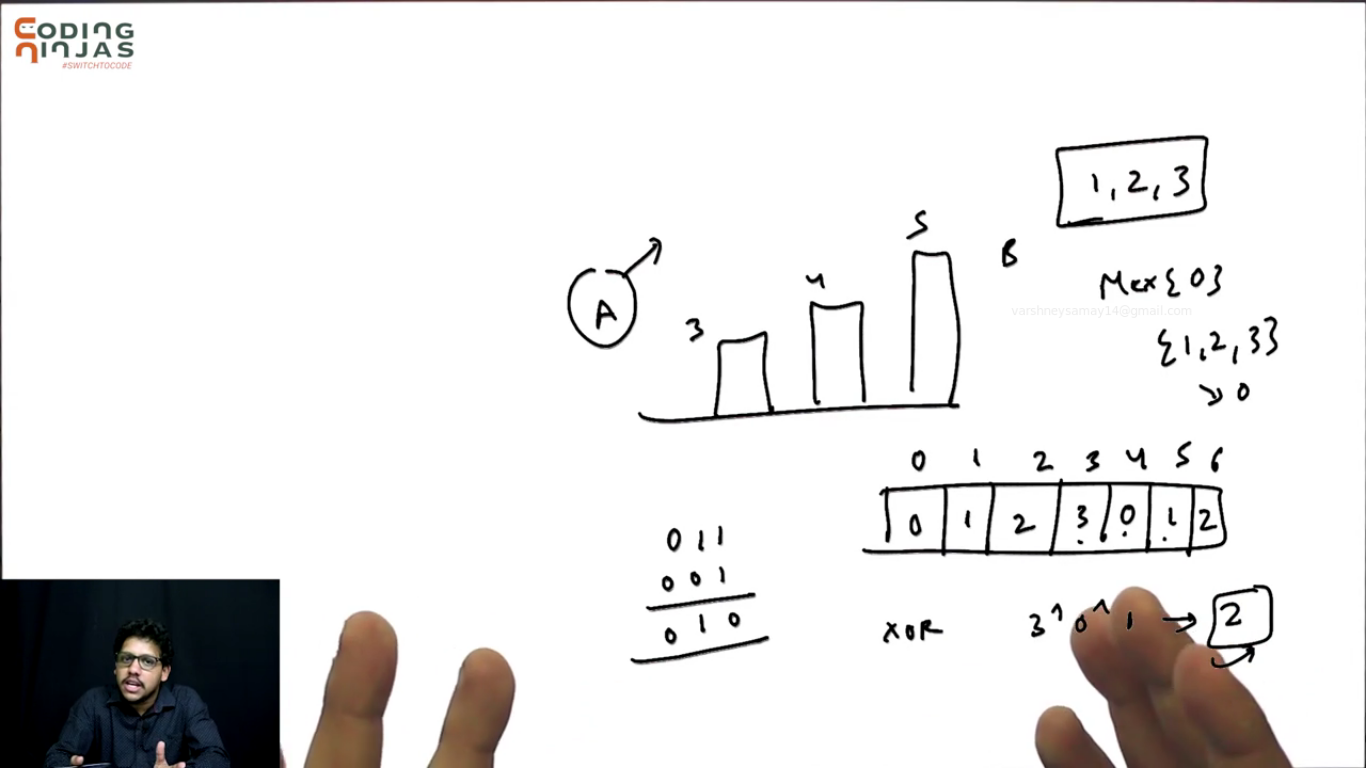 CODING
NINJAS
#SWITCHTOCODE
1, 2, 3
5
B
4
A
3
Mex{0}
varshneysamay14@gmail.com
{1, 2, 3}
↘ 0
0 1 2 3 4 5 6
0 1 2 3 0 1 2
0 1 1
0 0 1
0 1 0
XOR 3^0^1 → 2